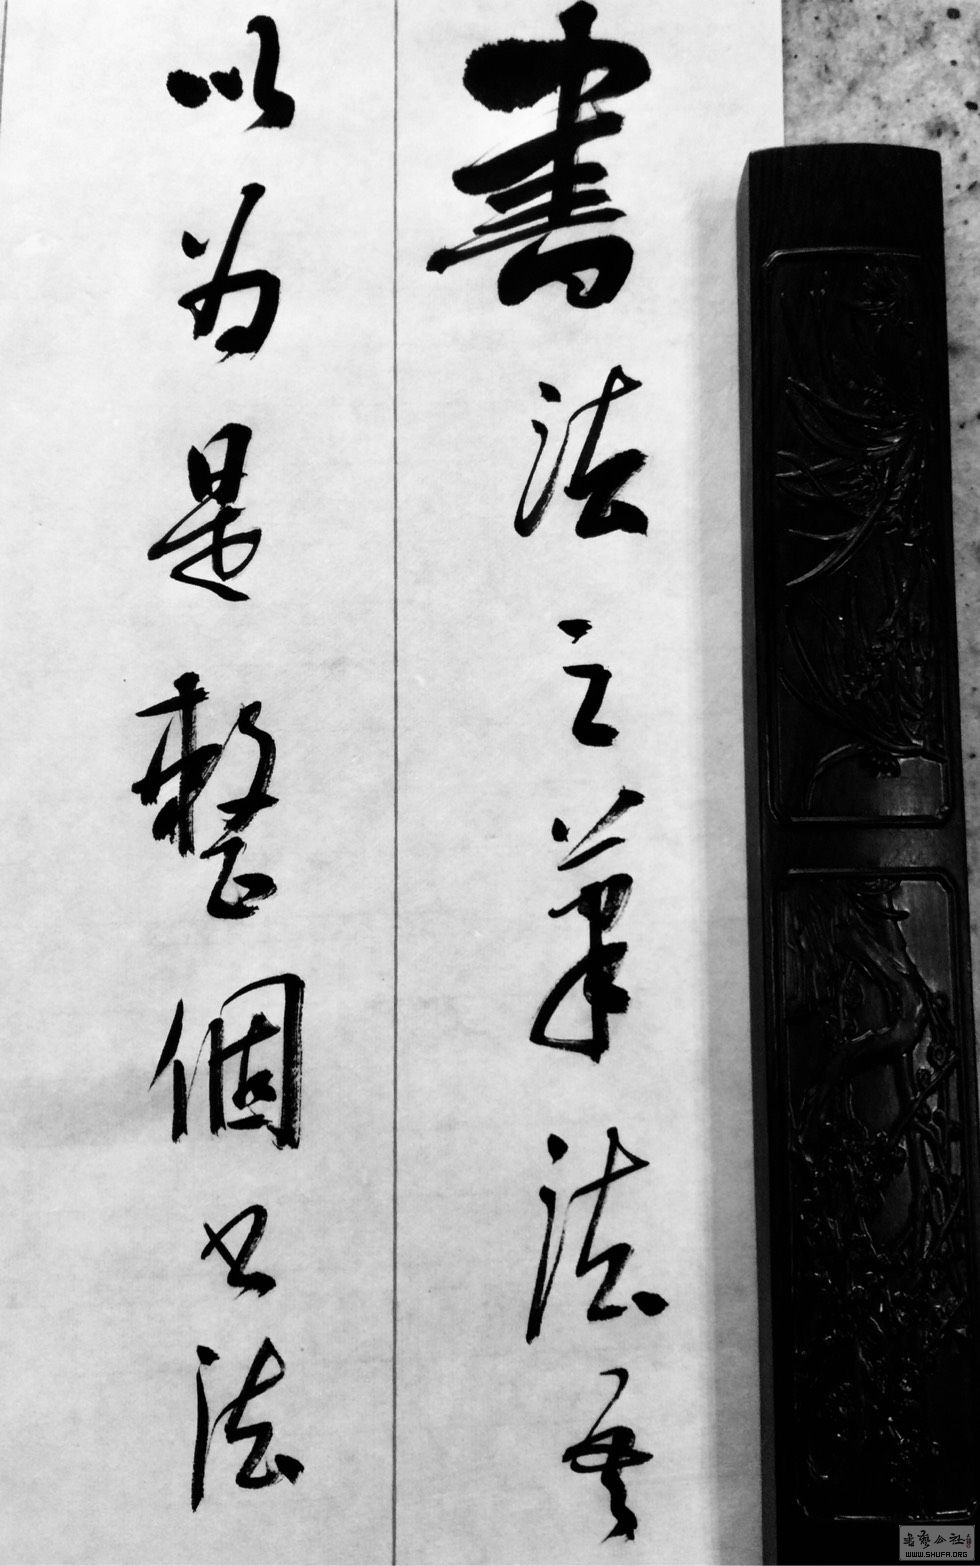 書法之筆法
以為是整個書法
書藝公社
WWW.SHUFA.ORG